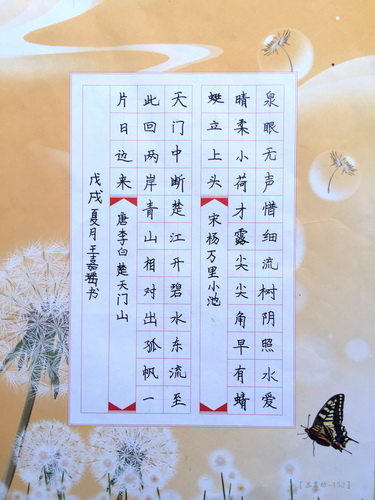 泉眼无声惜细流树阴照水爱
晴柔小荷才露尖尖角早有蜻
蜓立上头 宋杨万里小池
天门中断楚江开碧水东流至
此回两岸青山相对出孤帆一
片日边来 唐李白楚天门山
戊戌夏月王嘉书
-152